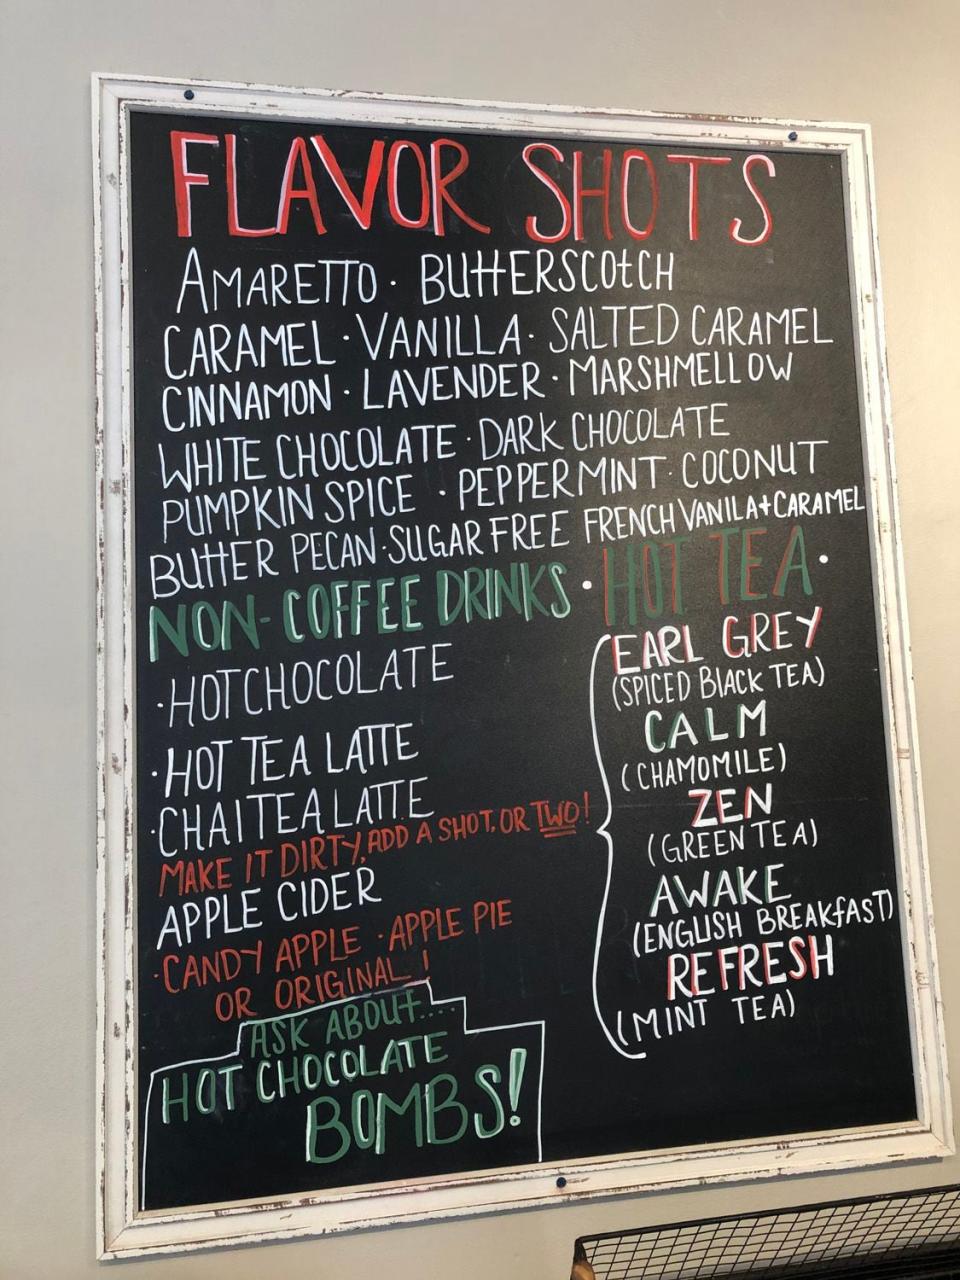 FLAVOR SHOTS
AMARETTO · BUTTERSCOTCH
CARAMEL · VANILLA · SALTED CARAMEL
CINNAMON · LAVENDER · MARSHMELLOW
WHITE CHOCOLATE · DARK CHOCOLATE
PUMPKIN SPICE · PEPPERMINT · COCONUT
BUTTER PECAN · SUGAR FREE FRENCH VANILA + CARAMEL
NON-COFFEE DRINKS · HOT TEA ·
· HOT CHOCOLATE
· HOT TEA LATTE
· CHAI TEA LATTE
MAKE IT DIRTY, ADD A SHOT, OR TWO!
APPLE CIDER
· CANDY APPLE · APPLE PIE
OR ORIGINAL!
ASK ABOUT....
HOT CHOCOLATE
BOMBS!
EARL GREY
(SPICED BLACK TEA)
CALM
(CHAMOMILE)
ZEN
(GREEN TEA)
AWAKE
(ENGLISH BREAKFAST)
REFRESH
(MINT TEA)